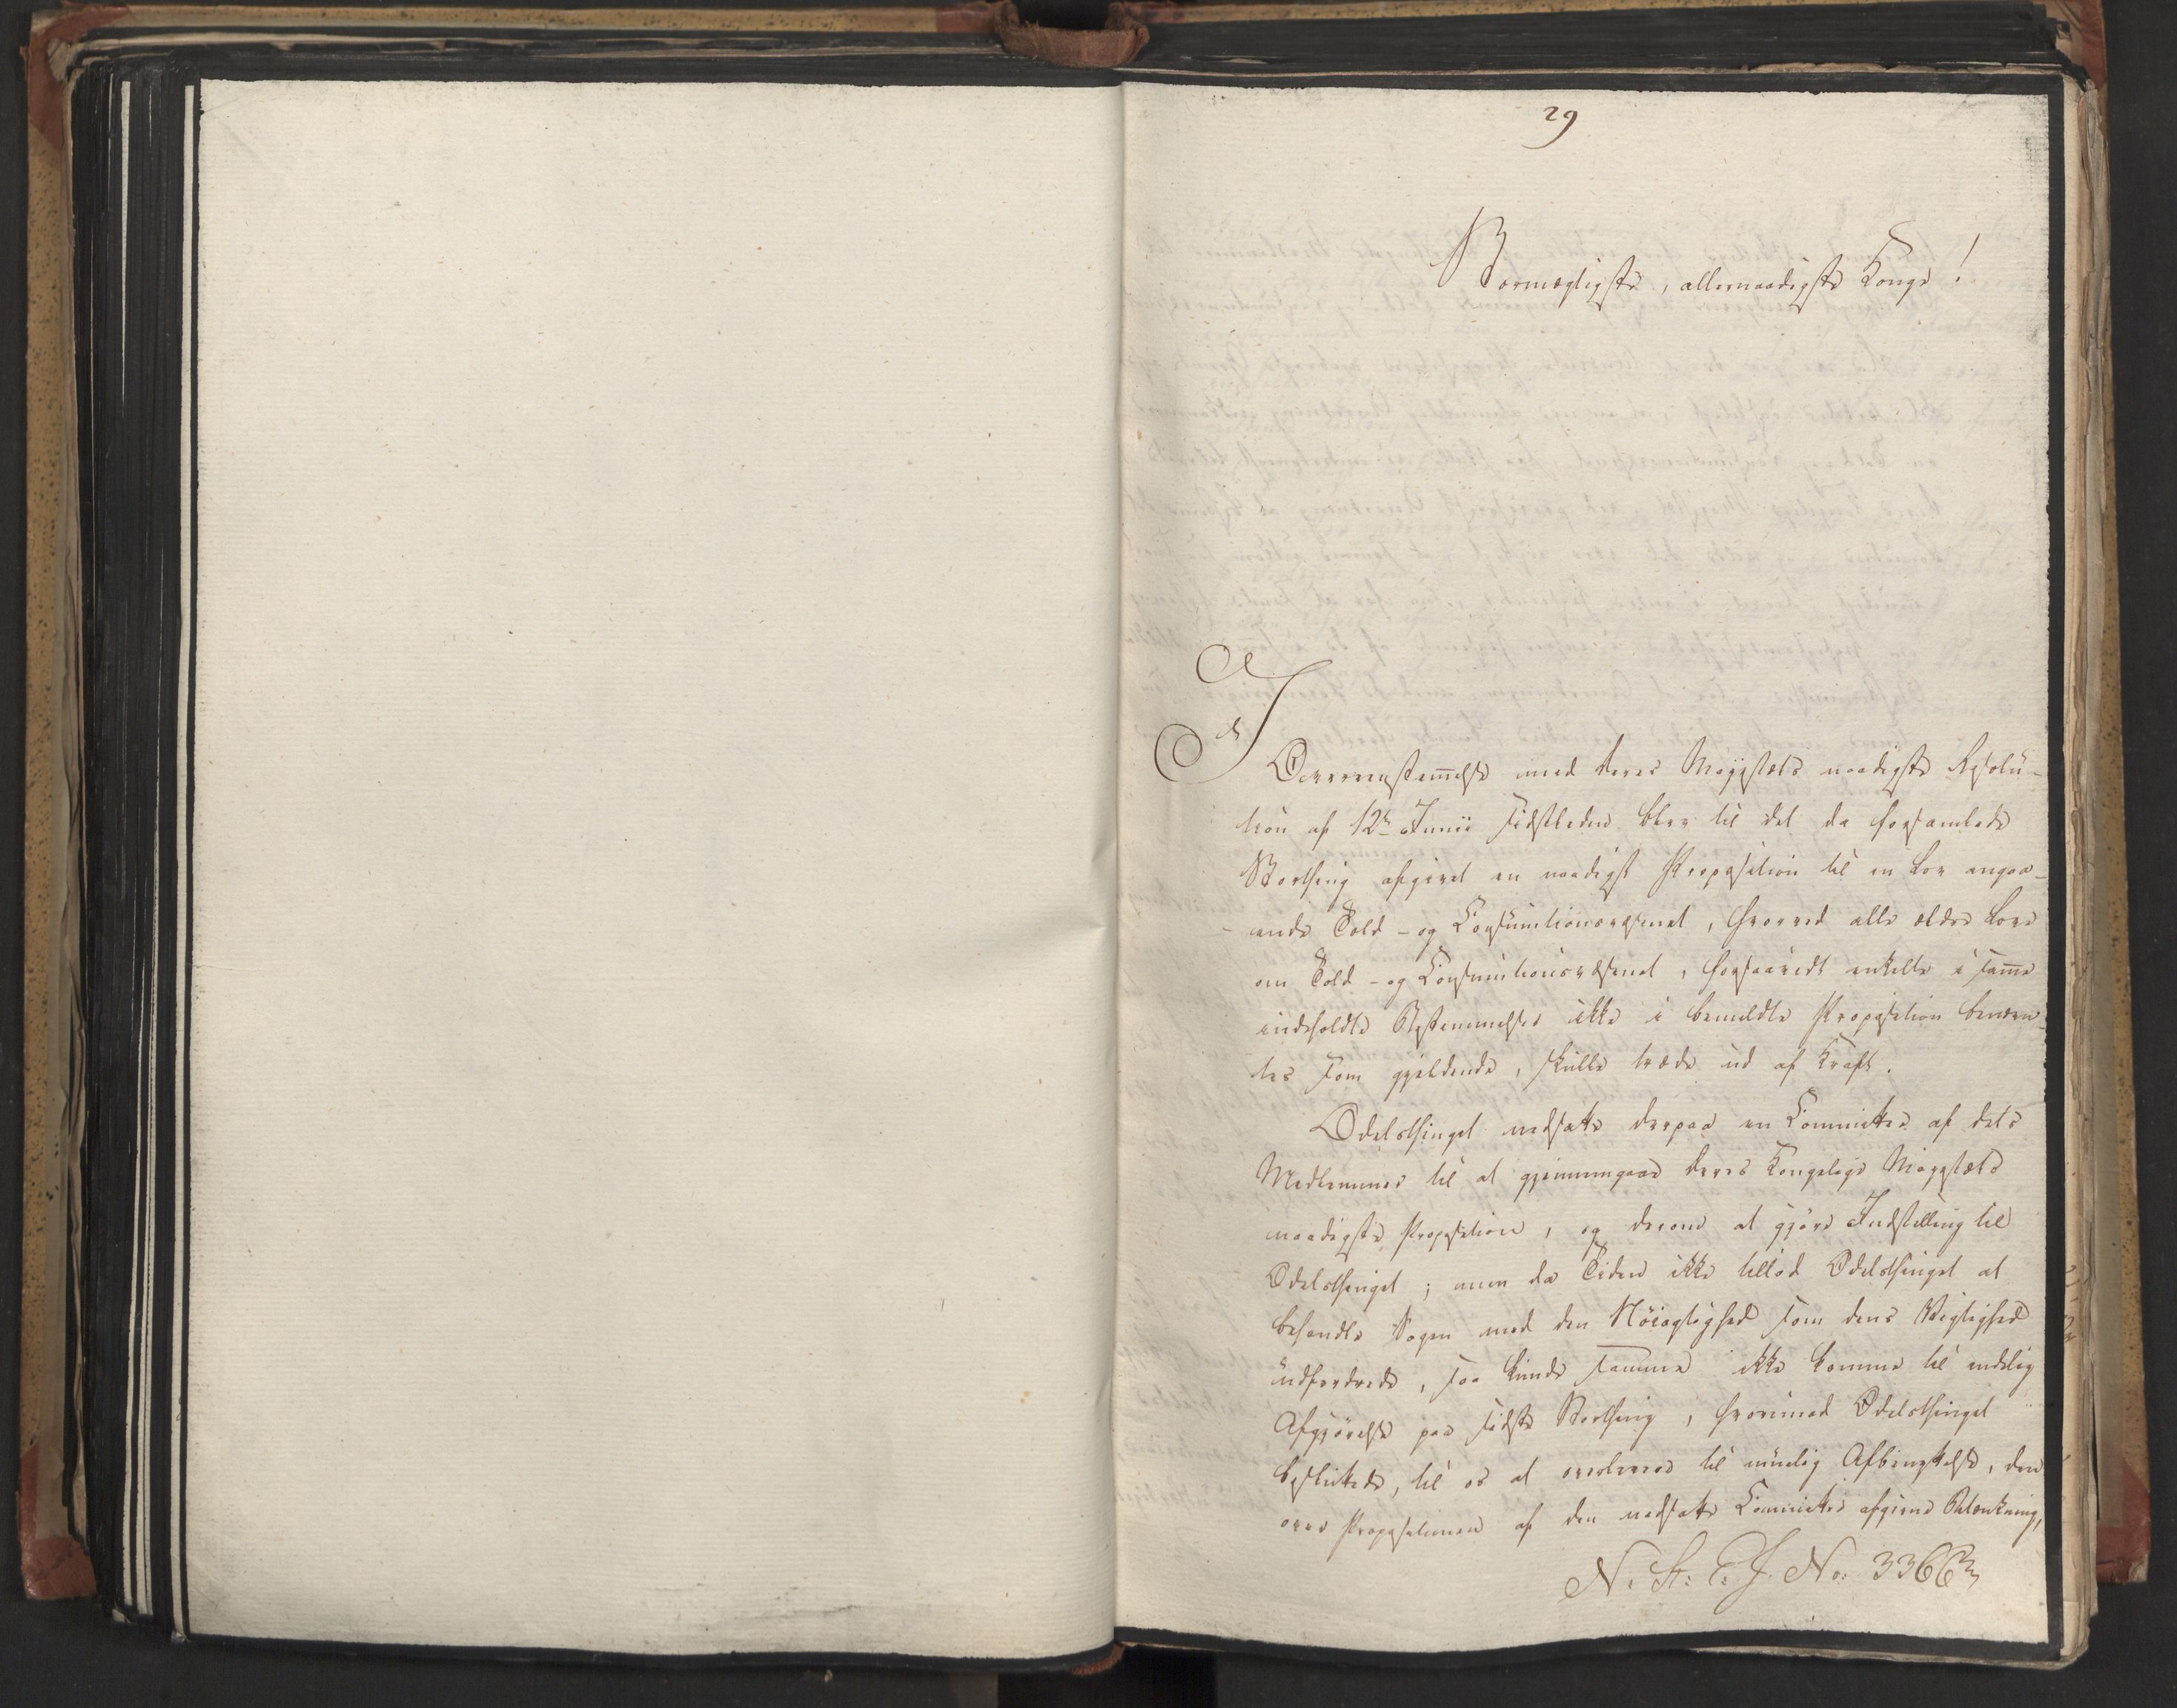 29
Stormægtigste, allernaadigste Konge!
I
Overeenstem̄else med Deres Majestæts naadigste Resolu-
tion af 12te Junii sidstleden blev til det da forsamlede
Storthing afgivet en naadigst Proposition til en Lov angaa-
ende Told- og Consumtionsvæsenet, hvorved alle ældre Love
om Told- og Consumtionsvæsenet, forsaavidt enkelte i sam̄e
indeholdte Bestemmelser ikke i bemeldte Proposition benævn-
tes som gjeldende, skulle træde ud af Kraft.
Odelsthinget nedsatte derpaa en Committee af dets
Medlemmer til at gjennemgaae Deres Kongelige Majestæts
naadigste Proposition, og derom at gjøre Indstilling til
Odelsthinget; men da Tiden ikke tillod Odelsthinget at
behandle Sagen med den Nöiagtighed som dens Vigtighed
udfordrede, saa kunde samme ikke komme til endelig
Afgjörelse paa sidste Storthing, hvorimod Odelsthinget
besluttede, til os at overlevere til muelig Afbenyttelse, den
over Propositionen af den nedsatte Committee afgivne Betænkning,
N. St: C: J. No: 336